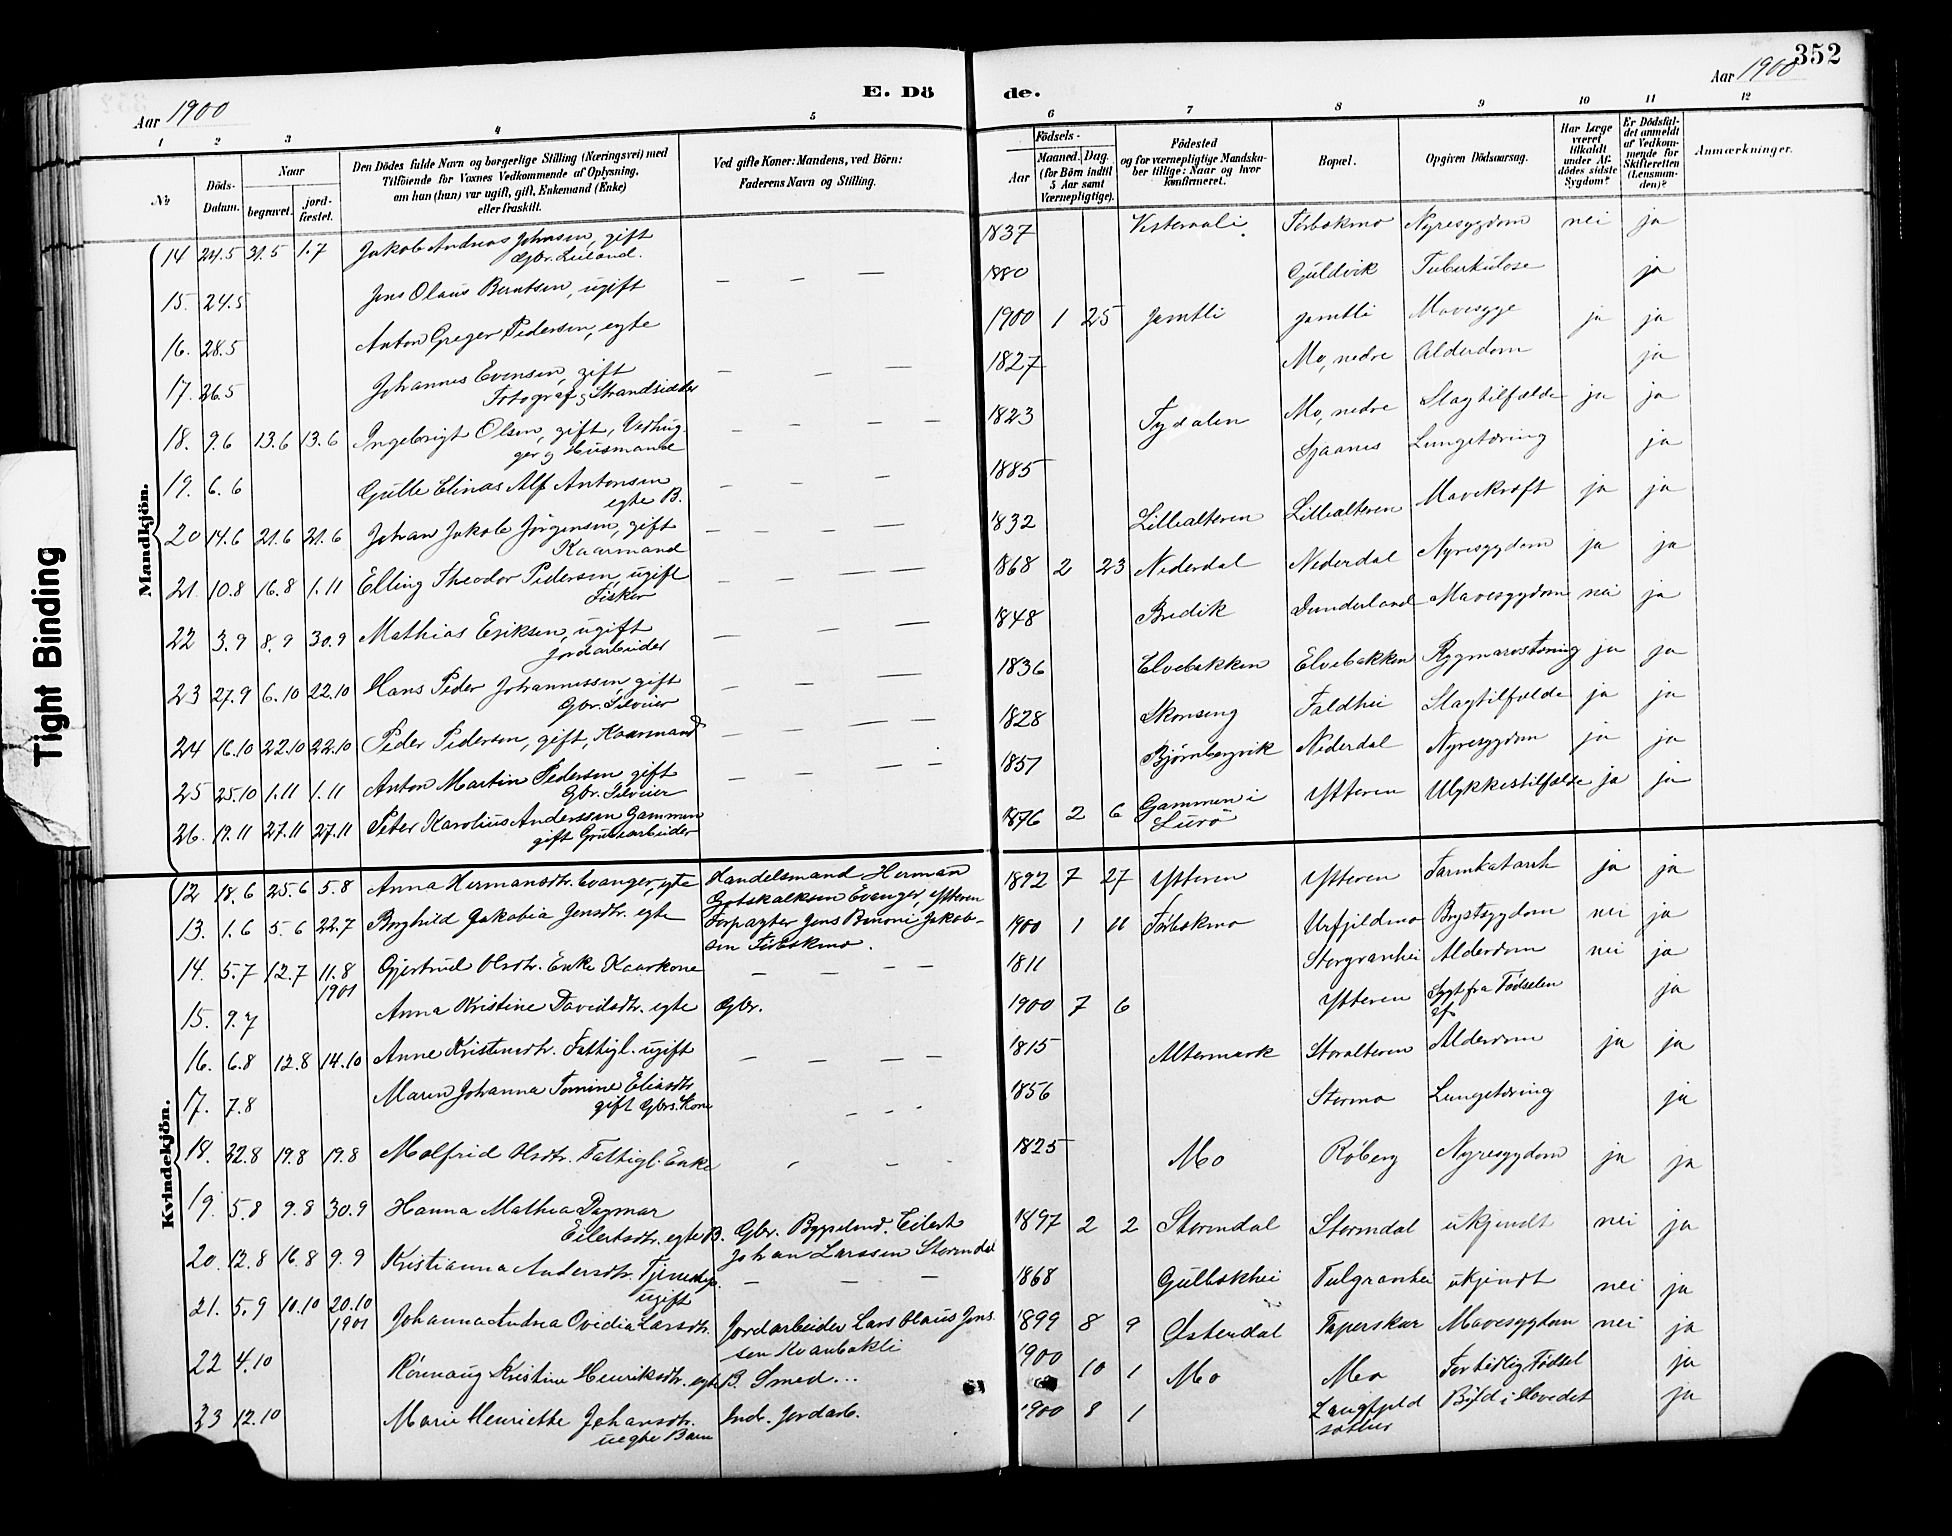 352
Aar 1900
E. Dö
de.
Aar 1900
1 2 3 4 5 6 7 8 9 10 11 12
№
Döds-
Datum.
Naar
begravet.
jord-
fæstet.
Den Dödes fulde Navn og borgerlige Stilling (Næringsvei) med
Tilföiende for Voxnes Vedkommende af Oplysning,
om han (hun) var ugift, gift, Enkemand (Enke)
eller fraskilt.
Ved gifte Koner: Mandens, ved Börn:
Faderens Navn og Stilling.
Födsels-
Aar
Maaned. Dag.
(for Börn indtil
5 Aar samt
Værnepligtige).
Födested
og for værnepligtige Mandska-
ber tillige: Naar og hvor
konfirmeret.
Bopæl.
Opgiven Dödsaarsag.
Har Læge
været
tilkaldt
under Af-
dödes sidste
Sygdom?
Er Dödsfal-
det anmeldt
af Vedkom-
mende for
Skifteretten
(Lensman-
den)?
Anmærkninger.
Tight Binding
Mandkjön.
14 24.5 31.5 1.7 Jakob Andreas Johnsen, gift — — — 1837 Vesteraali Forbakmo Nyresygdom nei ja
Gbr.
15. 24.5 Jens Olaus Berntsen, ugift 1880 Guldvik Tuberkulose ja
16. 28.5 Anton Greger Pedersen, egte 1900 1 25 Jamtli Jamtli Mavesyge ja ja
17. 26.5 Johannes Evensen, gift — — — 1827 Mo, nedre Alderdom ja
Fotograf og Strandsidder
18. 9.6 13.6 13.6 Ingebrigt Olsen, gift, Vedhug- — — — — 1823 Tydalen Mo, nedre Slagtilfælde ja ja
ger og Husmand
19. 6.6 Gulle Elinas Alf Antonsen — — — 1885 Lungetæring ja
egte B.
20 14.6 21.6 21.6 Johan Jakob Jörgensen, gift — — — — 1832 Lillealteren Lillealteren Mavekræft ja ja
Kaarmand
21. 10.8 16.8 1.11 Elling Theodor Pedersen, ugift — — — — 1868 2 23 Nederdal Nederdal Nyresygdom ja ja
Fisker
22 3.9 8.9 30.9 Mathias Eriksen, ugift — — — 1848 Bredik Dunderland Mavesygdom nei ja
Jordarbeider
23 27.9 6.10 22.10 Hans Peder Johannessen, gift — — — 1836 Elvebakken Elvebakken Rygmarvstæring ja ja
Gbr. Selveier
24 16.10 22.10 22.10 Peder Pedersen, gift, Kaarmand — — — — 1828 Skonseng Faldhei Slagtilfælde ja ja
25 25.10 1.11 1.11 Anton Martin Pedersen, gift — — — — 1857 Bjørnbergvik Nederdal Nyresygdom ja ja
Gbr. Selveier
26. 19.11 27.11 27.11 Peter Karolius Anderssen Gammen 1876 2 6 Gammen i Ytteren Ulykkestilfælde ja ja
gift Grubearbeider Lurö
Kvindekjön.
12 18.6 25.6 5.8 Anna Hermansdtr. Evanger, egte Handelsmand Herman 1892 7 27 Ytteren Ytteren Tarmkatarrh ja ja
Gotskalksen Evanger, Ytteren
13. 1.6 5.6 22.7 Borghild Jakobia Jensdtr. egte Forpagter Jens Benoni Jakob- 1900 1 11 Forbakmo Urfjeldmo Brystsygdom nei ja
sen Forbakmo.
14. 5.7 12.7 11.8 Gjertrud Olsdtr. Enke Kaarkone — — — — 1811 Storgranhei Alderdom nei ja
1901
15. 9.7 Anna Kristine Davidsdtr. egte Gbr. 1900 7 6 Ytteren Sygt fra Fødselen ja
af
16. 6.8 12.8 14.10 Anne Kristensdtr. Fattigl. ugift — — — — 1815 Altermark Storalteren Alderdom ja ja
17. 7.8 Maren Johanna Tomine Eliasdtr. — — — 1856 Stormo Lungetæring ja
gift Gbrs. Kone
18. 12.8 19.8 19.8 Malfrid Olsdtr. Fattigl. Enke 1825 Mo Røberg Nyresygdom ja ja
19. 5.8 9.8 30.9 Hanna Mathea Dagmar
Eilertsdtr. egte B. Gbr. Bygselmd. Eilert 1897 2 2 Stormdal Stormdal ukjendt nei ja
Johan Larssen Stormdal
20. 12.8 16.8 9.9 Kristianna Andersdtr. Tjenestep. — — — 1868 Gulbakhei Tulgranhei ukjendt nei ja
ugift
21. 5.9 10.10 20.10 Johanna Andrea Ovidia Larsdtr. Jordarbeider Lars Olaus Jens- 1899 8 9 Østerdal Taperskar Mavesygdom nei ja
1901 sen Kvanbakli
22 4.10 Rönnaug Kristine Henriksdtr. egte B. Smed ... 1900 10 1 Mo Mo For tidlig Födsel ja
23 12.10 Marie Henriette Johansdtr. Ind. Jordarb. 1900 8 1 Langfjeld Byld i Hovedet ja
uegte Barn